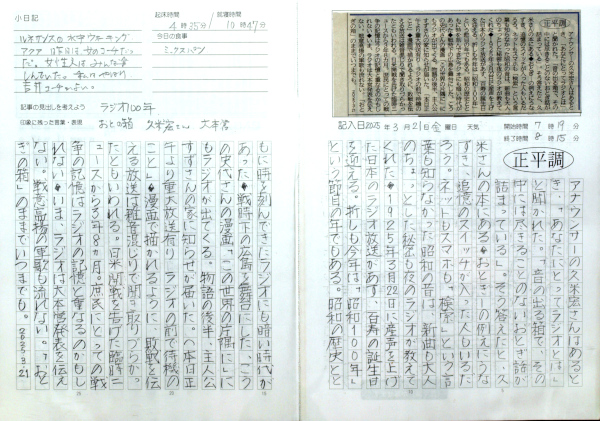 小日記
起床時間
4時35分
就寝時間
10時47分
ルネサンスの水中ウォーキング
アクア
だ。女性人はみんな楽
しんでいた。私はやはり
吉井コーチがよい。
今日の食事
ミックスパン
記事の見出しを考えよう
ラジオ100年
印象に残った言葉・表現
おとの箱 久米宏さん 大本営
正平調
記入日2025年3月21日金曜日 天気
開始時間 7時19分
終了時間 8時15分
正平調
アナウンサーの久米宏さんはあると
き、「あなたにとってラジオとは」
と聞かれた。「音の出る箱で、その
中には尽きることのないおとぎ話が
詰まっている」。そう答えたと、久
米さんの本にある◆おとぎの例えにうな
ずき、追憶のスイッチが入った人もいるだ
ろう。ネットもスマホも、「検索」という言
葉も知らなかった昭和の昔は、新曲も大人
のちょっとした秘密も夜のラジオが教えて
くれた◆1925年3月22日に産声を上げ
た日本のラジオ放送があす、百寿の誕生日
を迎える。折しも今年は「昭和100年」
という節目の年でもある。昭和の歴史とと
もに時を刻んできたラジオにも暗い時代が
あった◆戦時下の広島を舞台にした、こう
の史代さんの漫画「この世界の片隅に」に
もラジオが出てくる。物語の後半、主人公
すずさんの家に知らせが届いた。〈本日正
午より重大放送有り ラジオの前で待機の
こと〉◆漫画で描かれるように、敗戦を伝
える放送は雑音混じりで聞き取りづらか
ったともいわれる。日米開戦を告げた臨時ニ
ュースから3年8カ月。庶民にとっての戦
争の記憶はラジオの記憶と重なるのかもし
れない◆いま、ラジオは大本営発表を伝え
ない。戦意高揚の軍歌も流れない。「おと
ぎの箱」のままでいつまでも。2025・3・21